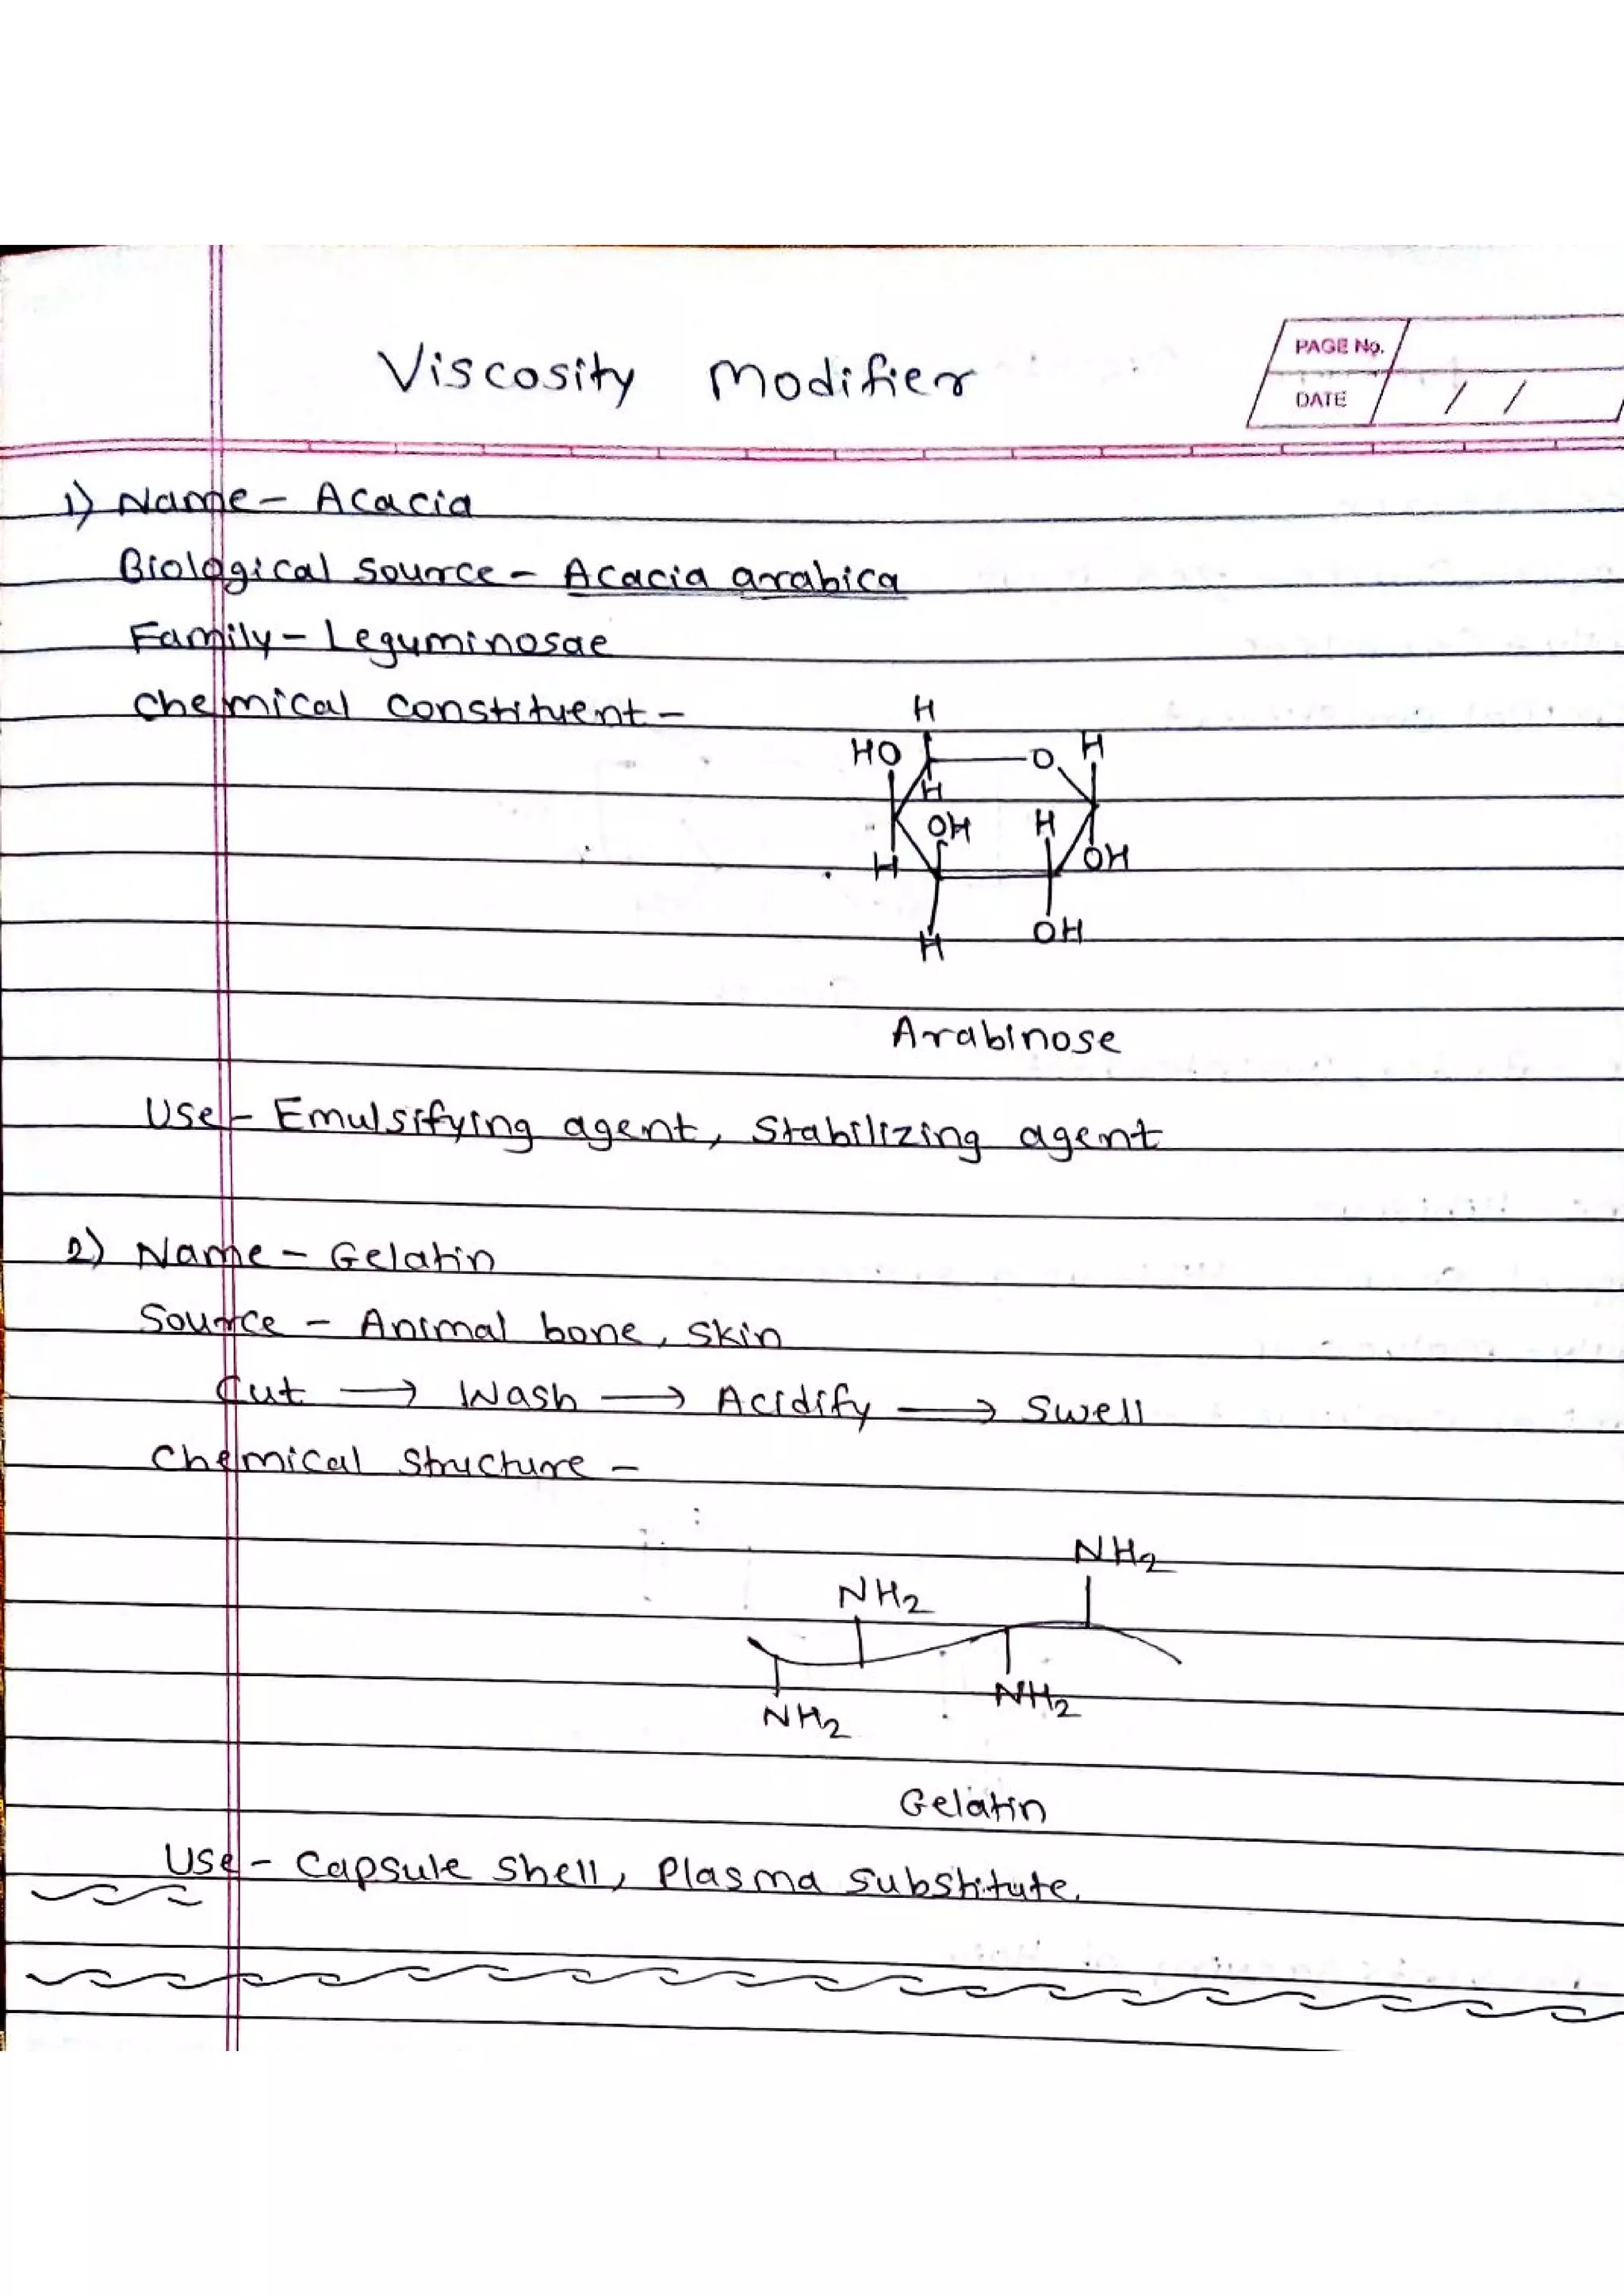 Viscosity Modifier
PAGE No.
DATE / /
1) Name - Acacia
Biological source - Acacia arabica
Family - Leguminosae
Chemical constituent -
H
HO O H
H
OH H
H OH
H OH
Arabinose
Use - Emulsifying agent, Stabilizing agent
2) Name - Gelatin
Source - Animal bone, Skin
Cut → Wash → Acidify → Swell
Chemical Structure -
NH2
NH2
NH2
NH2
Gelatin
Use - Capsule Shell, Plasma Substitute.